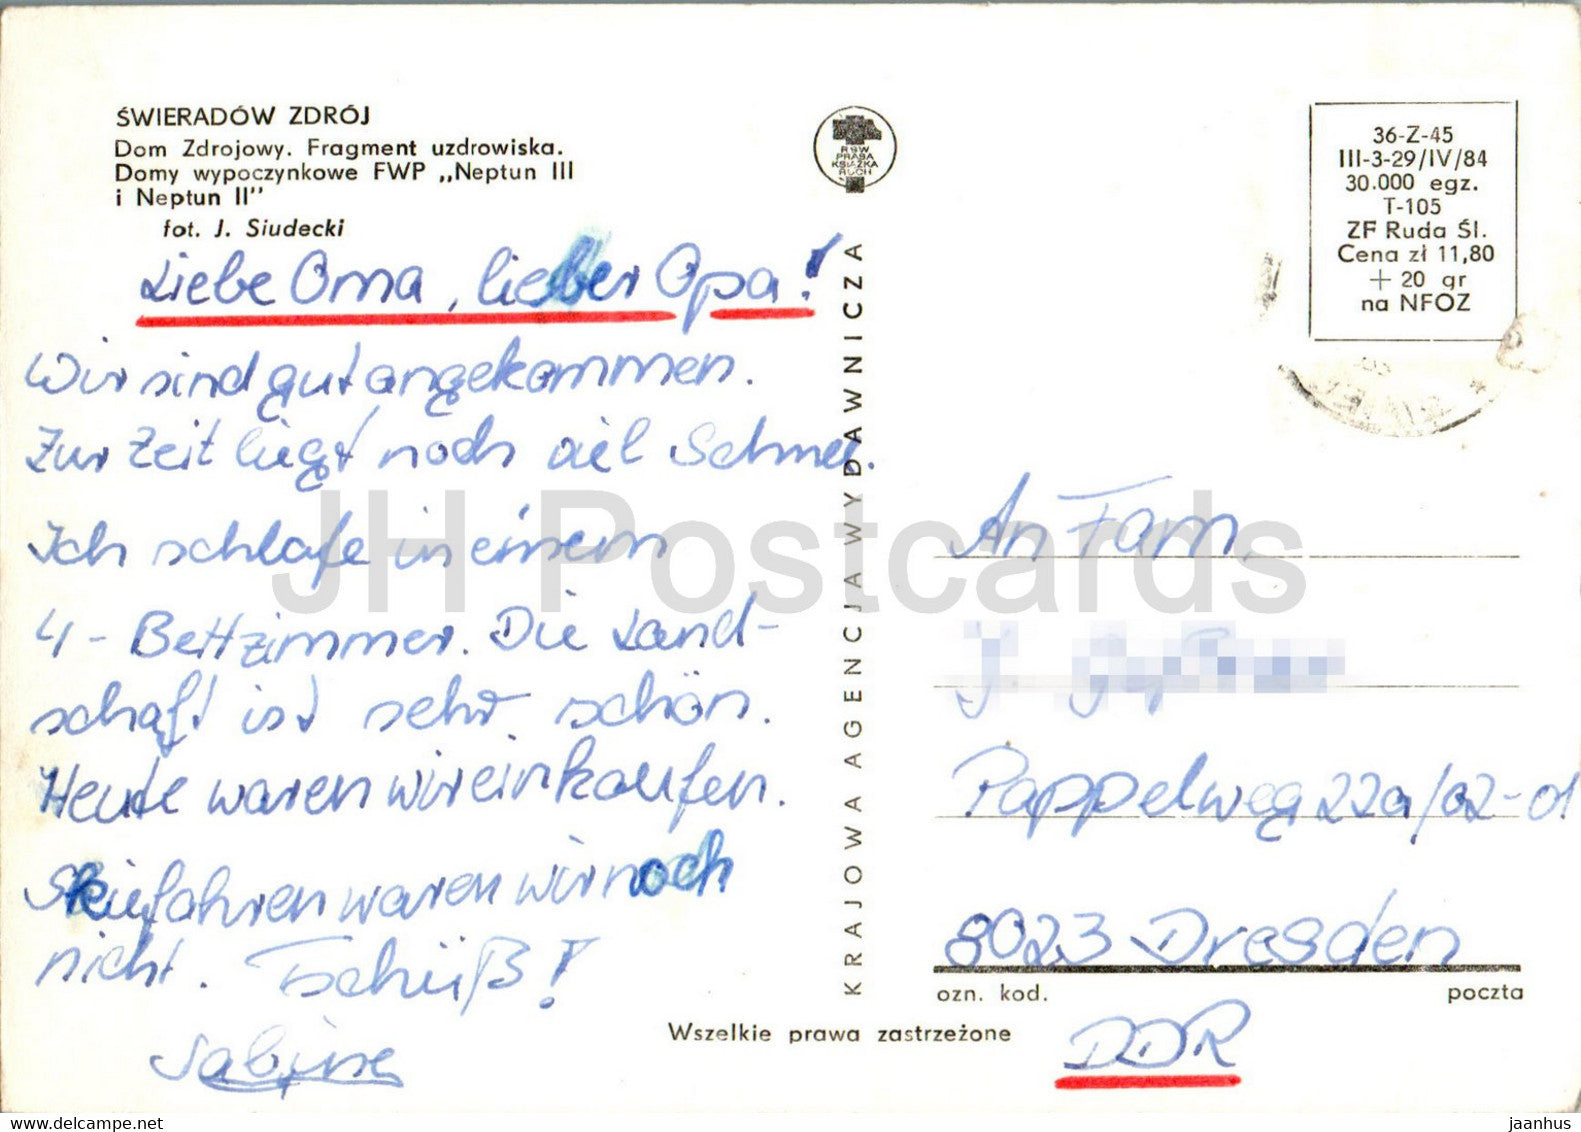 ŚWIERADÓW ZDRÓJ
Dom Zdrojowy. Fragment uzdrowiska.
Domy wypoczynkowe FWP „Neptun III
i Neptun II"
fot. J. Siudecki
Liebe Oma, lieber Opa!
Wir sind gut angekommen.
Zur Zeit liegt noch viel Schnee.
Ich schlafe in einem
4-Bettzimmer. Die Land-
schaft ist sehr schön.
Heute waren wir einkaufen.
Skiefahren waren wir noch
nicht. Tschüß!
Sabine
RSW
PRASA
KSIĄŻKA
RUCH
KRAJOWA AGENCJA WYDAWNICZA
36-Z-45
III-3-29/IV/84
30.000 egz.
T-105
ZF Ruda Śl.
Cena zł 11,80
+ 20 gr
na NFOZ
An Fam.
Pappelweg 22a/02-01
8023 Dresden
ozn. kod. poczta
DDR
Wszelkie prawa zastrzeżone
JH Postcards
jaanhus © delcampe.net